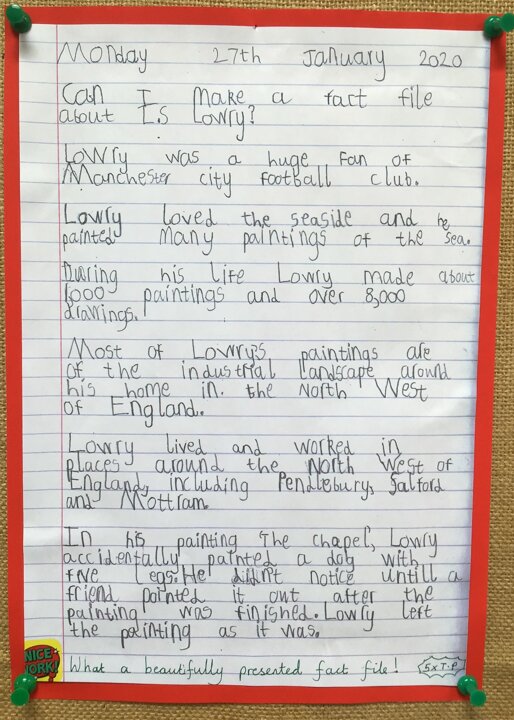 Monday 27th January 2020
Can I make a fact file
about LS Lowry?
Lowry was a huge fan of
Manchester city football club.
Lowry loved the seaside and he
painted many paintings of the sea.
During his life Lowry made about
1,000 paintings and over 8,000
drawings.
Most of Lowry's paintings are
of the industrial landscape around
his home in. the North West
of England.
Lowry lived and worked in
places around the North West of
England, including Pendlebury, Salford
and Mottram.
In his painting 'The chapel', Lowry
accidentally painted a dog with
five legs. He didn't notice untill a
friend pointed it out after the
painting was finished. Lowry left
the painting as it was.
NICE WORK!
What a beautifully presented fact file! 5xT.P